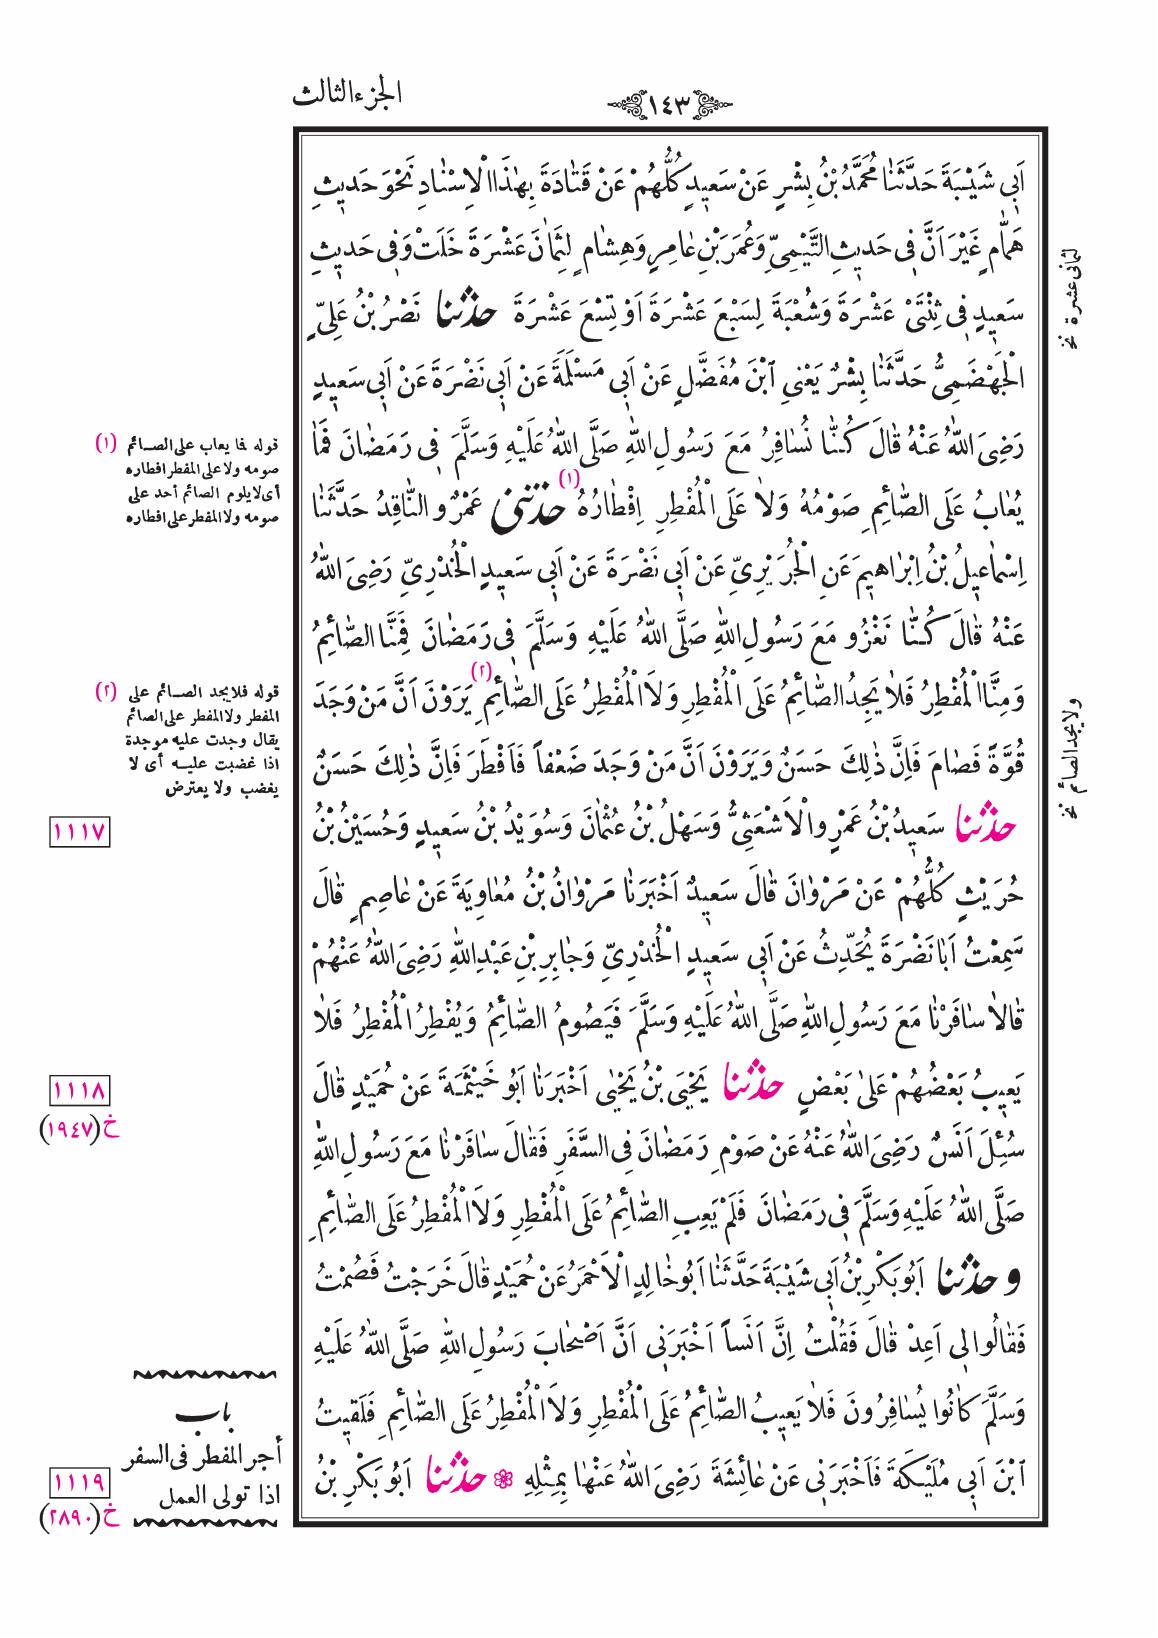 ١٤٣
الجزء الثالث
اَبِى شَيْبَةَ حَدَّثَنَا مُحَمَّدُ بْنُ بِشْرٍ عَنْ سَعِيدٍ كُلُّهُمْ عَنْ قَتَادَةَ بِهٰذَا الْاِسْنَادِ نَحْوَ حَدِيثِ
هَمَّامٍ غَيْرَ اَنَّ فِى حَدِيثِ التَّيْمِىِّ وَعُمَرَ بْنِ عَامِرٍ وَهِشَامٍ لِثَمَانَ عَشْرَةَ خَلَتْ وَفِى حَدِيثِ
سَعِيدٍ فِى ثِنْتَىْ عَشْرَةَ وَشُعْبَةَ لِسَبْعَ عَشْرَةَ اَوْ تِسْعَ عَشْرَةَ حَدَّثَنَا نَصْرُ بْنُ عَلِىٍّ
الْجَهْضَمِىُّ حَدَّثَنَا بِشْرٌ يَعْنِى ابْنَ مُفَضَّلٍ عَنْ اَبِى مَسْلَمَةَ عَنْ اَبِى نَضْرَةَ عَنْ اَبِى سَعِيدٍ
رَضِىَ اللّٰهُ عَنْهُ قَالَ كُنَّا نُسَافِرُ مَعَ رَسُولِ اللّٰهِ صَلَّى اللّٰهُ عَلَيْهِ وَسَلَّمَ فِى رَمَضَانَ فَمَا
يُعَابُ عَلَى الصَّائِمِ صَوْمُهُ وَلَا عَلَى الْمُفْطِرِ اِفْطَارُهُ (١) حَدَّثَنِى عَمْرٌو النَّاقِدُ حَدَّثَنَا
اِسْمَاعِيلُ بْنُ اِبْرَاهِيمَ عَنِ الْجُرَيْرِىِّ عَنْ اَبِى نَضْرَةَ عَنْ اَبِى سَعِيدٍ الْخُدْرِىِّ رَضِىَ اللّٰهُ
عَنْهُ قَالَ كُنَّا نَغْزُو مَعَ رَسُولِ اللّٰهِ صَلَّى اللّٰهُ عَلَيْهِ وَسَلَّمَ فِى رَمَضَانَ فَمِنَّا الصَّائِمُ
وَمِنَّا الْمُفْطِرُ فَلَا يَجِدُ الصَّائِمُ عَلَى الْمُفْطِرِ وَلَا الْمُفْطِرُ عَلَى الصَّائِمِ (٢) يَرَوْنَ اَنَّ مَنْ وَجَدَ
قُوَّةً فَصَامَ فَاِنَّ ذٰلِكَ حَسَنٌ وَيَرَوْنَ اَنَّ مَنْ وَجَدَ ضَعْفاً فَاَفْطَرَ فَاِنَّ ذٰلِكَ حَسَنٌ
حَدَّثَنَا سَعِيدُ بْنُ عَمْرٍو الْاَشْعَثِىُّ وَسَهْلُ بْنُ عُثْمَانَ وَسُوَيْدُ بْنُ سَعِيدٍ وَحُسَيْنُ بْنُ
حُرَيْثٍ كُلُّهُمْ عَنْ مَرْوَانَ قَالَ سَعِيدٌ اَخْبَرَنَا مَرْوَانُ بْنُ مُعَاوِيَةَ عَنْ عَاصِمٍ قَالَ
سَمِعْتُ اَبَا نَضْرَةَ يُحَدِّثُ عَنْ اَبِى سَعِيدٍ الْخُدْرِىِّ وَجَابِرِ بْنِ عَبْدِ اللّٰهِ رَضِىَ اللّٰهُ عَنْهُمْ
قَالَا سَافَرْنَا مَعَ رَسُولِ اللّٰهِ صَلَّى اللّٰهُ عَلَيْهِ وَسَلَّمَ فَيَصُومُ الصَّائِمُ وَيُفْطِرُ الْمُفْطِرُ فَلَا
يَعِيبُ بَعْضُهُمْ عَلٰى بَعْضٍ حَدَّثَنَا يَحْيَى بْنُ يَحْيٰى اَخْبَرَنَا اَبُو خَيْثَمَةَ عَنْ حُمَيْدٍ قَالَ
سُئِلَ اَنَسٌ رَضِىَ اللّٰهُ عَنْهُ عَنْ صَوْمِ رَمَضَانَ فِى السَّفَرِ فَقَالَ سَافَرْنَا مَعَ رَسُولِ اللّٰهِ
صَلَّى اللّٰهُ عَلَيْهِ وَسَلَّمَ فِى رَمَضَانَ فَلَمْ يَعِبِ الصَّائِمُ عَلَى الْمُفْطِرِ وَلَا الْمُفْطِرُ عَلَى الصَّائِمِ
وحَدَّثَنَا اَبُو بَكْرِ بْنُ اَبِى شَيْبَةَ حَدَّثَنَا اَبُو خَالِدٍ الْاَحْمَرُ عَنْ حُمَيْدٍ قَالَ خَرَجْتُ فَصُمْتُ
فَقَالُوا لِى اَعِدْ قَالَ فَقُلْتُ اِنَّ اَنَساً اَخْبَرَنِى اَنَّ اَصْحَابَ رَسُولِ اللّٰهِ صَلَّى اللّٰهُ عَلَيْهِ
وَسَلَّمَ كَانُوا يُسَافِرُونَ فَلَا يَعِيبُ الصَّائِمُ عَلَى الْمُفْطِرِ وَلَا الْمُفْطِرُ عَلَى الصَّائِمِ فَلَقِيتُ
ابْنَ اَبِى مُلَيْكَةَ فَاَخْبَرَنِى عَنْ عَائِشَةَ رَضِىَ اللّٰهُ عَنْهَا بِمِثْلِهِ حَدَّثَنَا اَبُو بَكْرِ بْنُ
لثمانى عشرة نخ
ولا يجد الصائم نخ
(١) قوله فما يعاب على الصائم
صومه ولا على المفطر افطاره
أى لا يلوم الصائم أحد على
صومه ولا المفطر على افطاره
(٢) قوله فلا يجد الصائم على
المفطر ولا المفطر على الصائم
يقال وجدت عليه موجدة
اذا غضبت عليه أى لا
يغضب ولا يعترض
١١١٧
١١١٨
خ (١٩٤٧)
باب
أجر المفطر فى السفر
اذا تولى العمل
١١١٩
خ (٢٨٩٠)